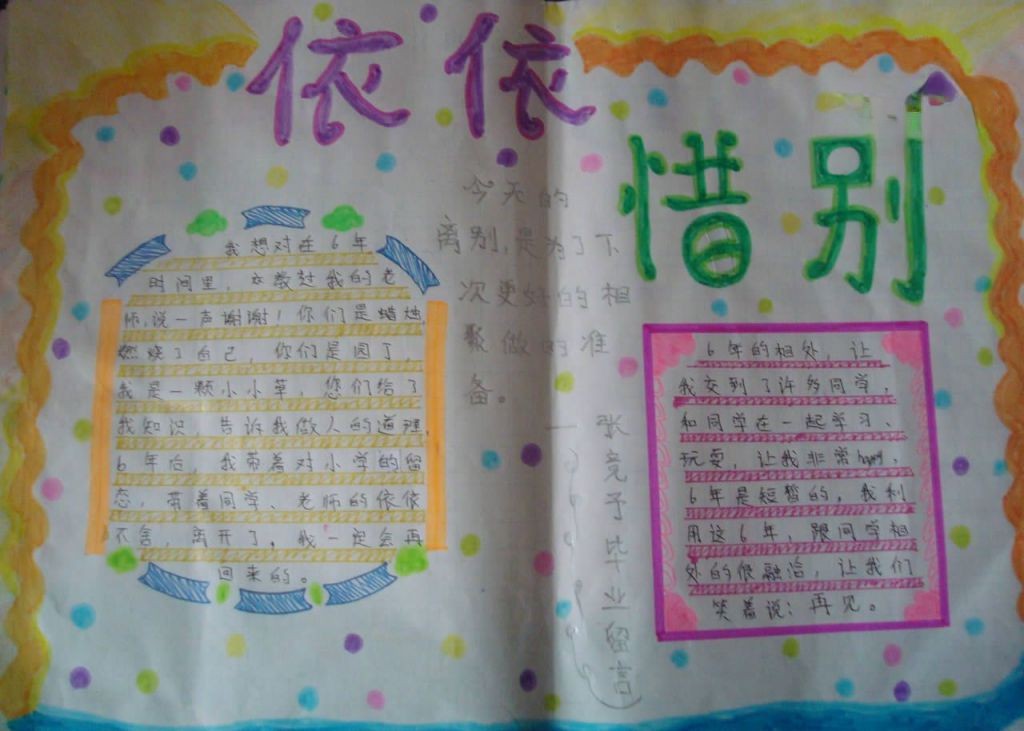 依依
惜别
我想对在6年
时间里,交教过我的老
师,说一声谢谢!你们是蜡烛,
燃烧了自己,你们是园丁,
我是一颗小小草,您们给了
我知识,告诉我做人的道理,
6年后,我带着对小学的留
恋,带着同学、老师的依依
不舍,离开了。我一定会再
回来的。
今天的
离别,是为了下
次更好的相
聚做的准
备。
—张竞予毕业留言
6年的相处,让
我交到了许多同学,
和同学在一起学习、
玩耍,让我非常happy,
6年是短暂的,我利
用这6年,跟同学相
处的很融洽,让我们
笑着说:再见。